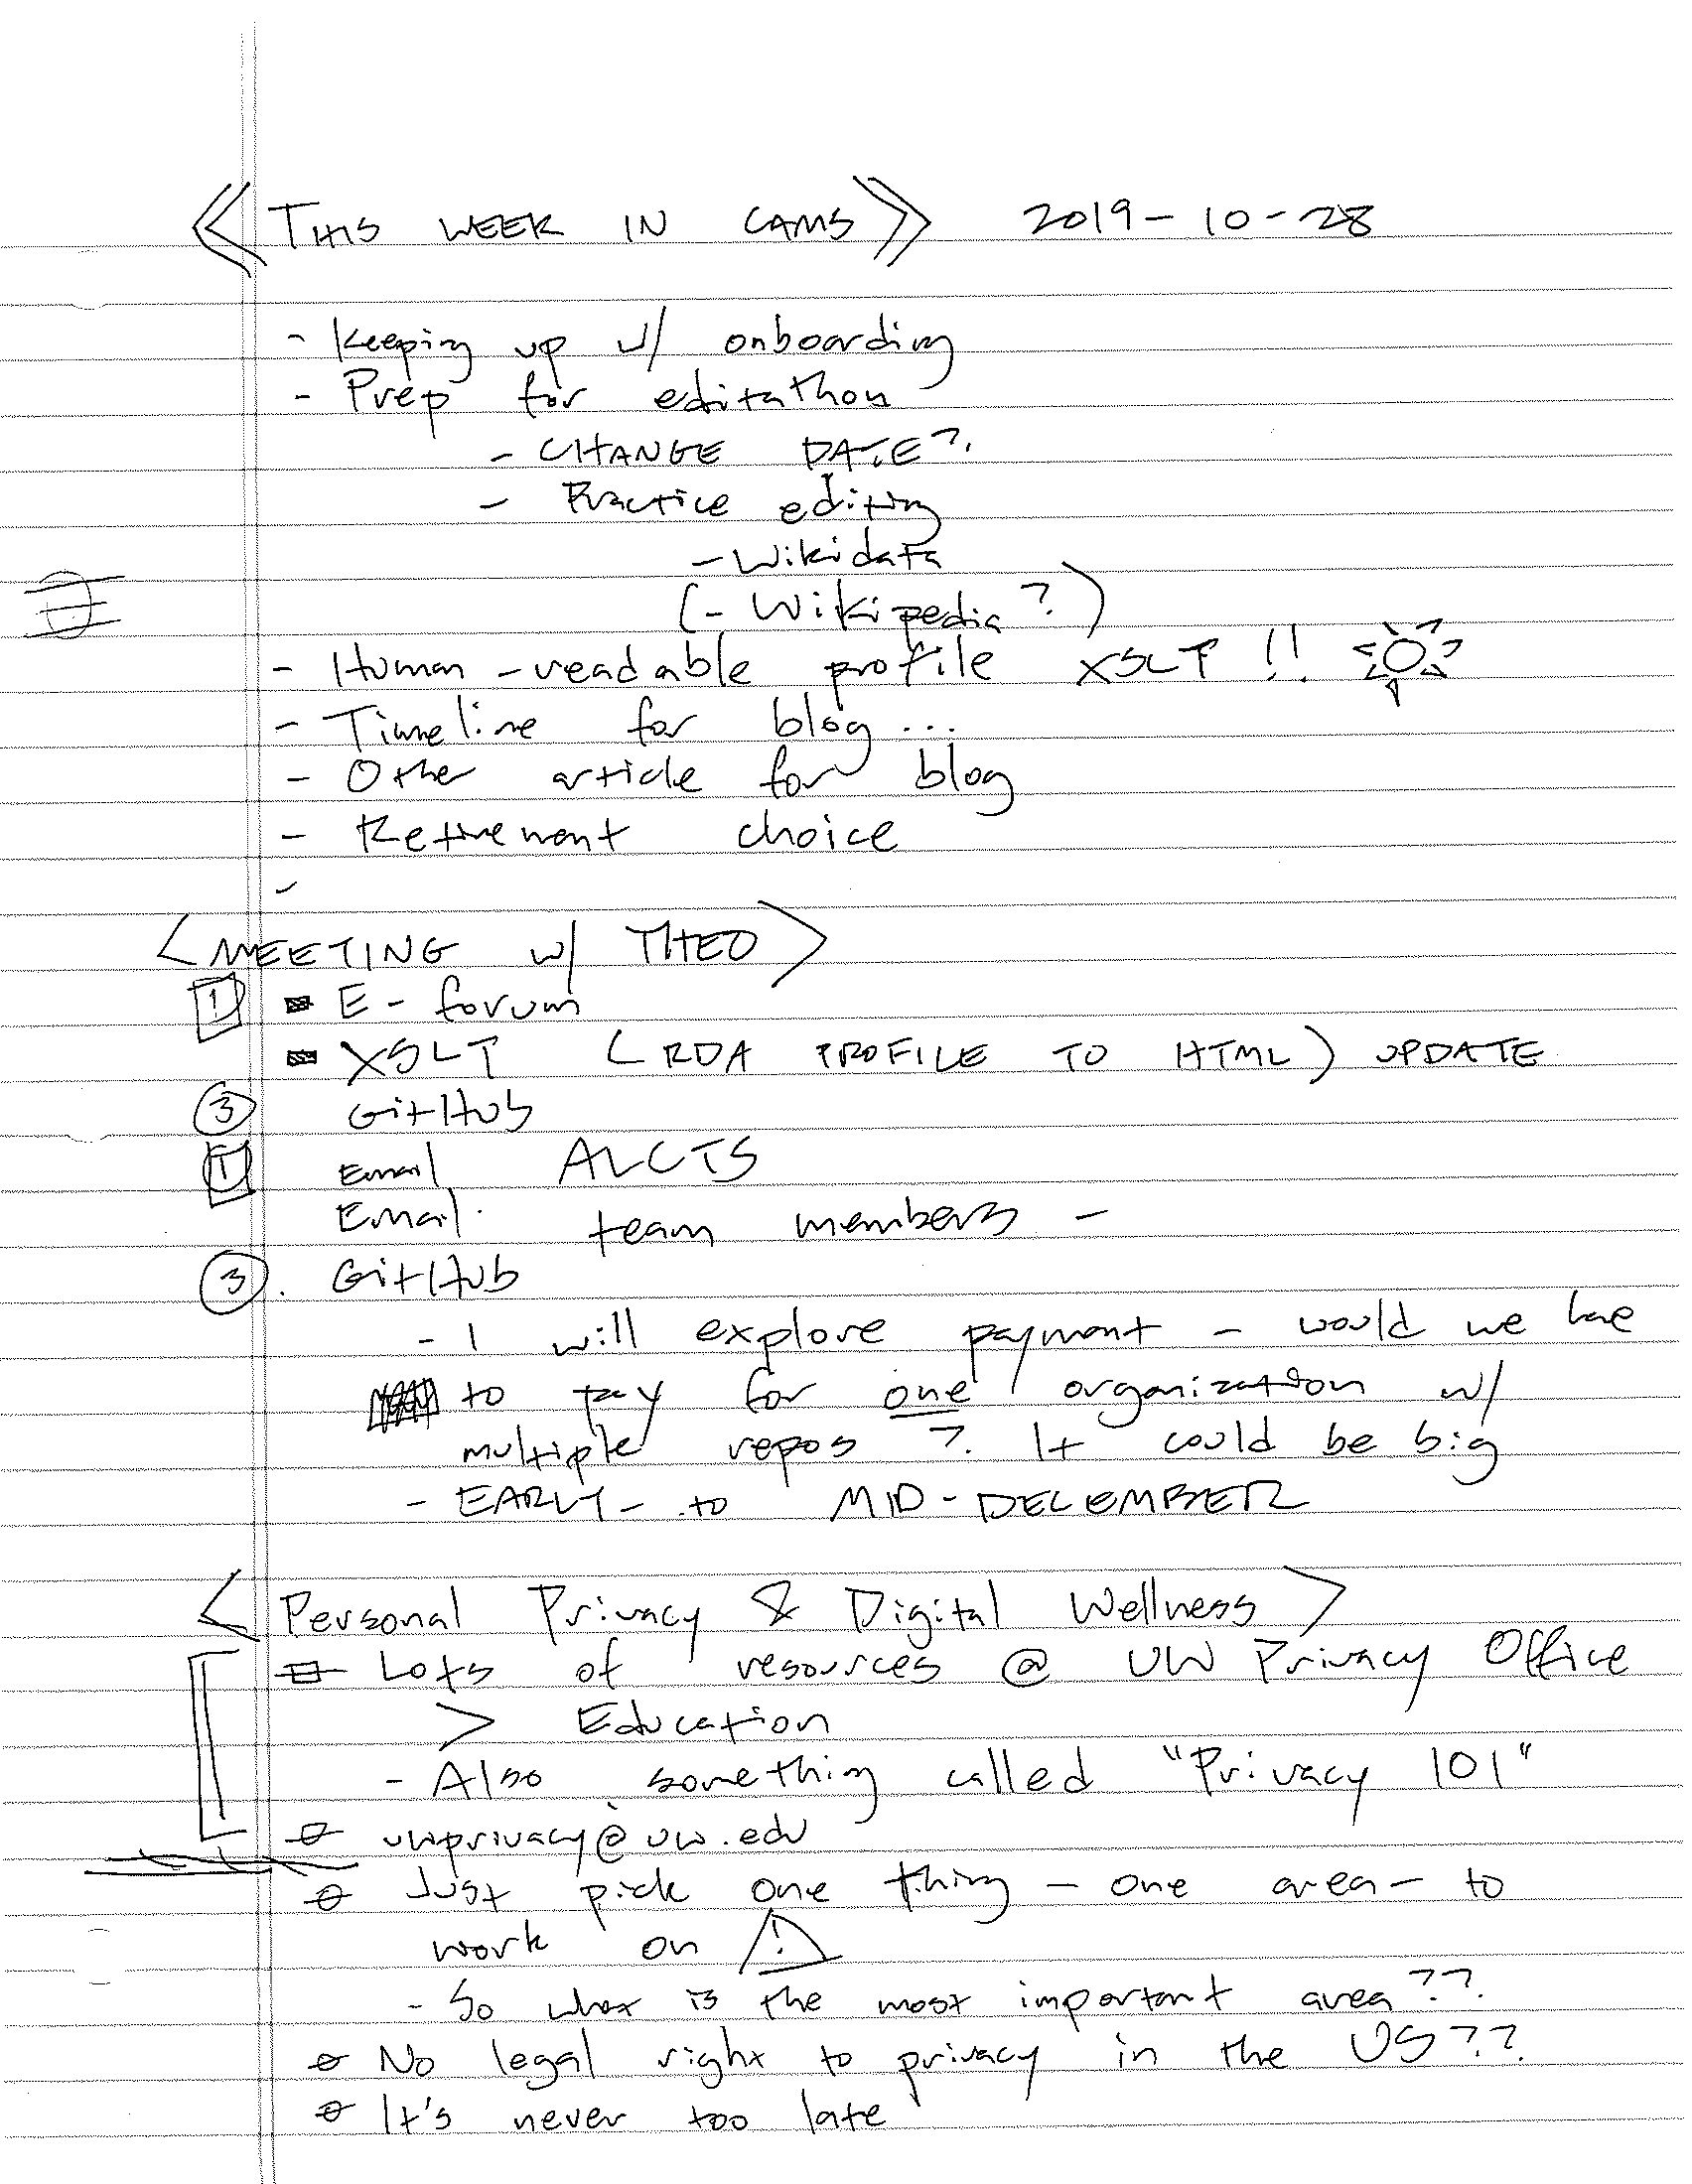 << THIS WEEK IN CAMS >> 2019-10-28
- Keeping up w/ onboarding
- Prep for editathon
- CHANGE DATE?
- Practice editing
- Wikidata
(- Wikipedia?)
- Human-readable profile XSLT !!
- Timeline for blog...
- Other article for blog
- Retirement choice
-
< MEETING w/ THEO >
1 - E-forum
- XSLT (RDA PROFILE TO HTML) UPDATE
3 GitHub
1 Email ALCTS
Email team members -
3. GitHub
- I will explore payment - would we have
to pay for one organization w/
multiple repos? It could be big
- EARLY- to MID-DECEMBER
< Personal Privacy & Digital Wellness >
Lots of resources @ UW Privacy Office
> Education
- Also something called "Privacy 101"
uwprivacy@uw.edu
Just pick one thing - one area - to
work on !
- So what is the most important area??
No legal right to privacy in the US??
It's never too late